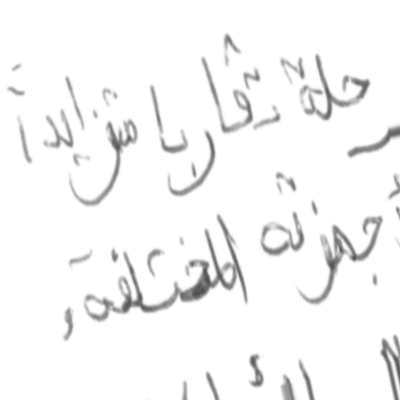 حلة تقاربا متزايداً
أجهزته المختلفة,